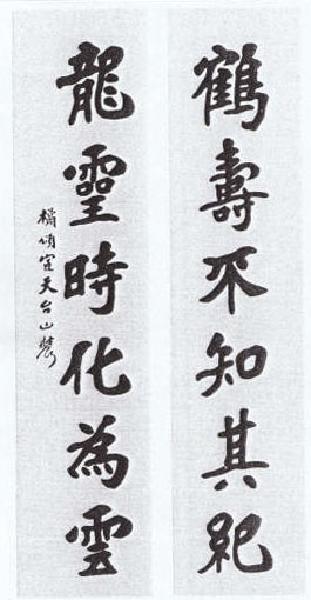 鶴壽不知其紀
龍靈時化為雲
橘頌室天台山農